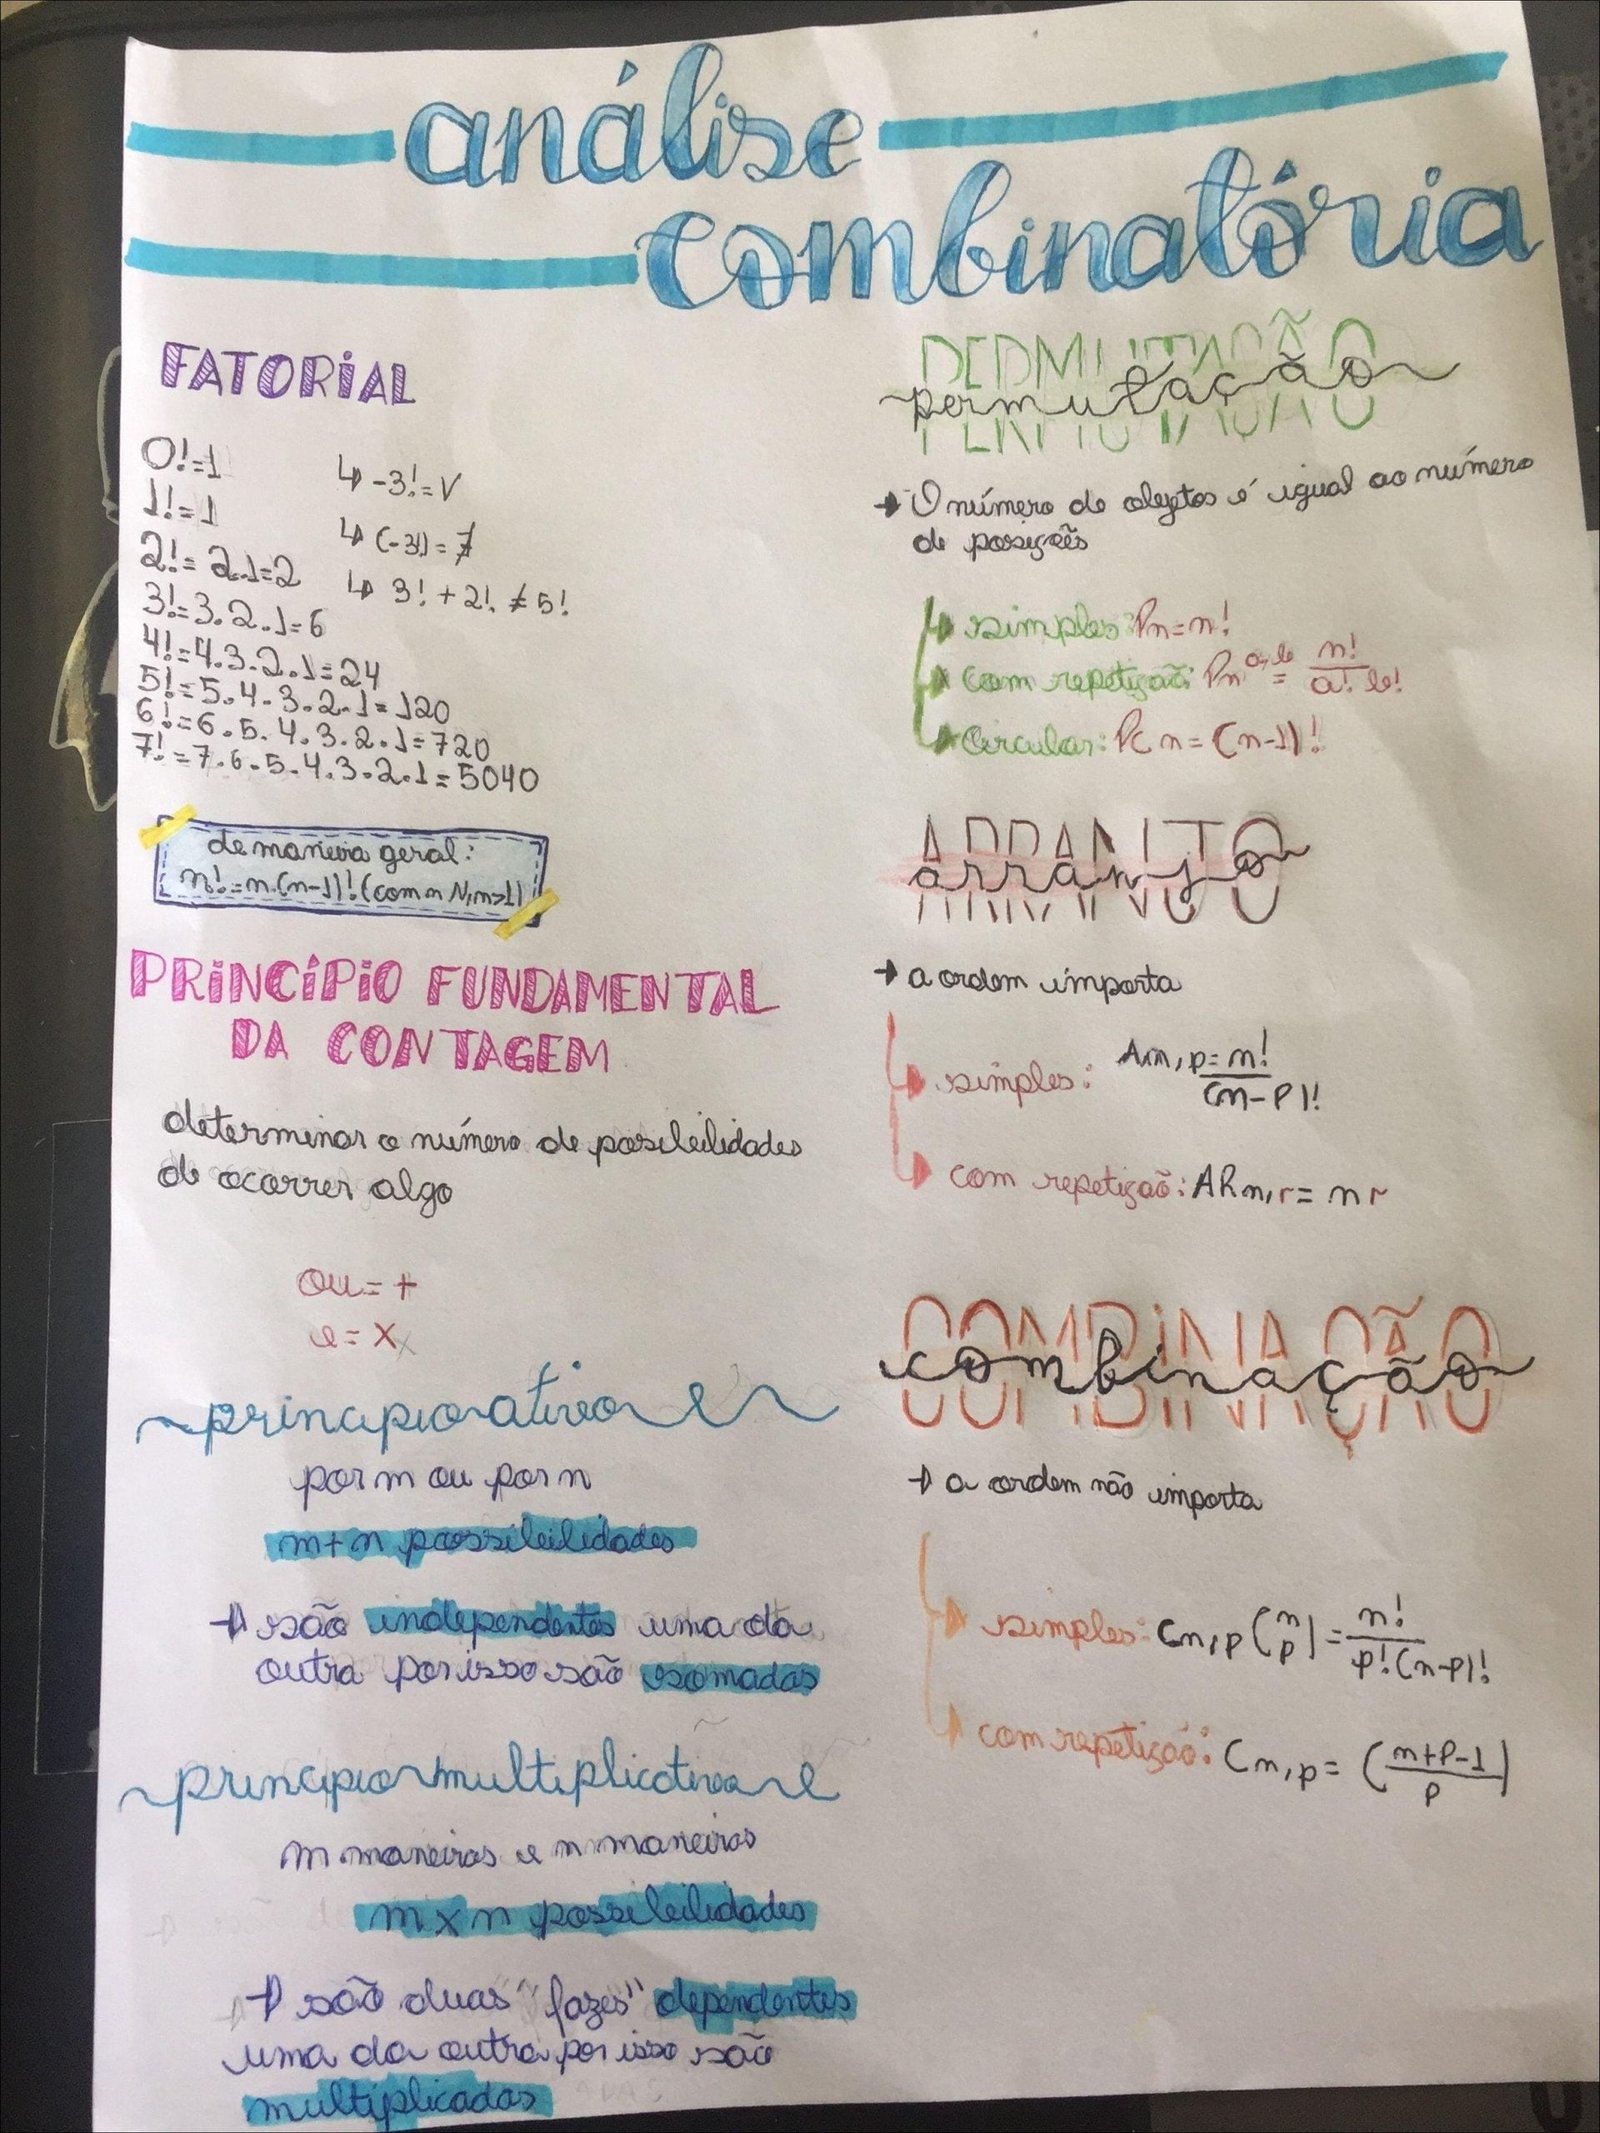 análise
combinatória
FATORIAL
0! = 1
1! = 1
2! = 2.1 = 2
3! = 3.2.1 = 6
4! = 4.3.2.1 = 24
5! = 5.4.3.2.1 = 120
6! = 6.5.4.3.2.1 = 720
7! = 7.6.5.4.3.2.1 = 5040
↳ -3! = V
↳ (-3!) = ∄
↳ 3! + 2! ≠ 5!
de maneira geral:
n! = n.(n-1)! (com n N, n>1)
PRINCÍPIO FUNDAMENTAL
DA CONTAGEM
determinar o número de possibilidades
de ocorrer algo
ou = +
e = x
principio ativo
por m ou por n
m+n possibilidades
→ são independentes uma da
outra por isso são somadas
principio multiplicativo
m maneiras e n maneiras
m x n possibilidades
→ são duas "fazes" dependentes
uma da outra por isso são
multiplicadas
PERMUTAÇÃO
permutação
→ O número de objetos é igual ao número
de posições
simples: Pn = n!
com repetição: Pn^a,b = n!/a! b!
circular: Pc n = (n-1)!
ARRANJO
arranjo
→ a ordem importa
simples: An,p = n!/(n-p)!
com repetição: ARn,r = n r
COMBINAÇÃO
combinação
→ a ordem não importa
simples: Cn,p (n p) = n!/p!(n-p)!
com repetição: Cn,p = (n+p-1/p)